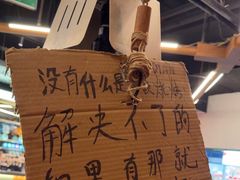 没有什么是
解决不了的
如果有那就